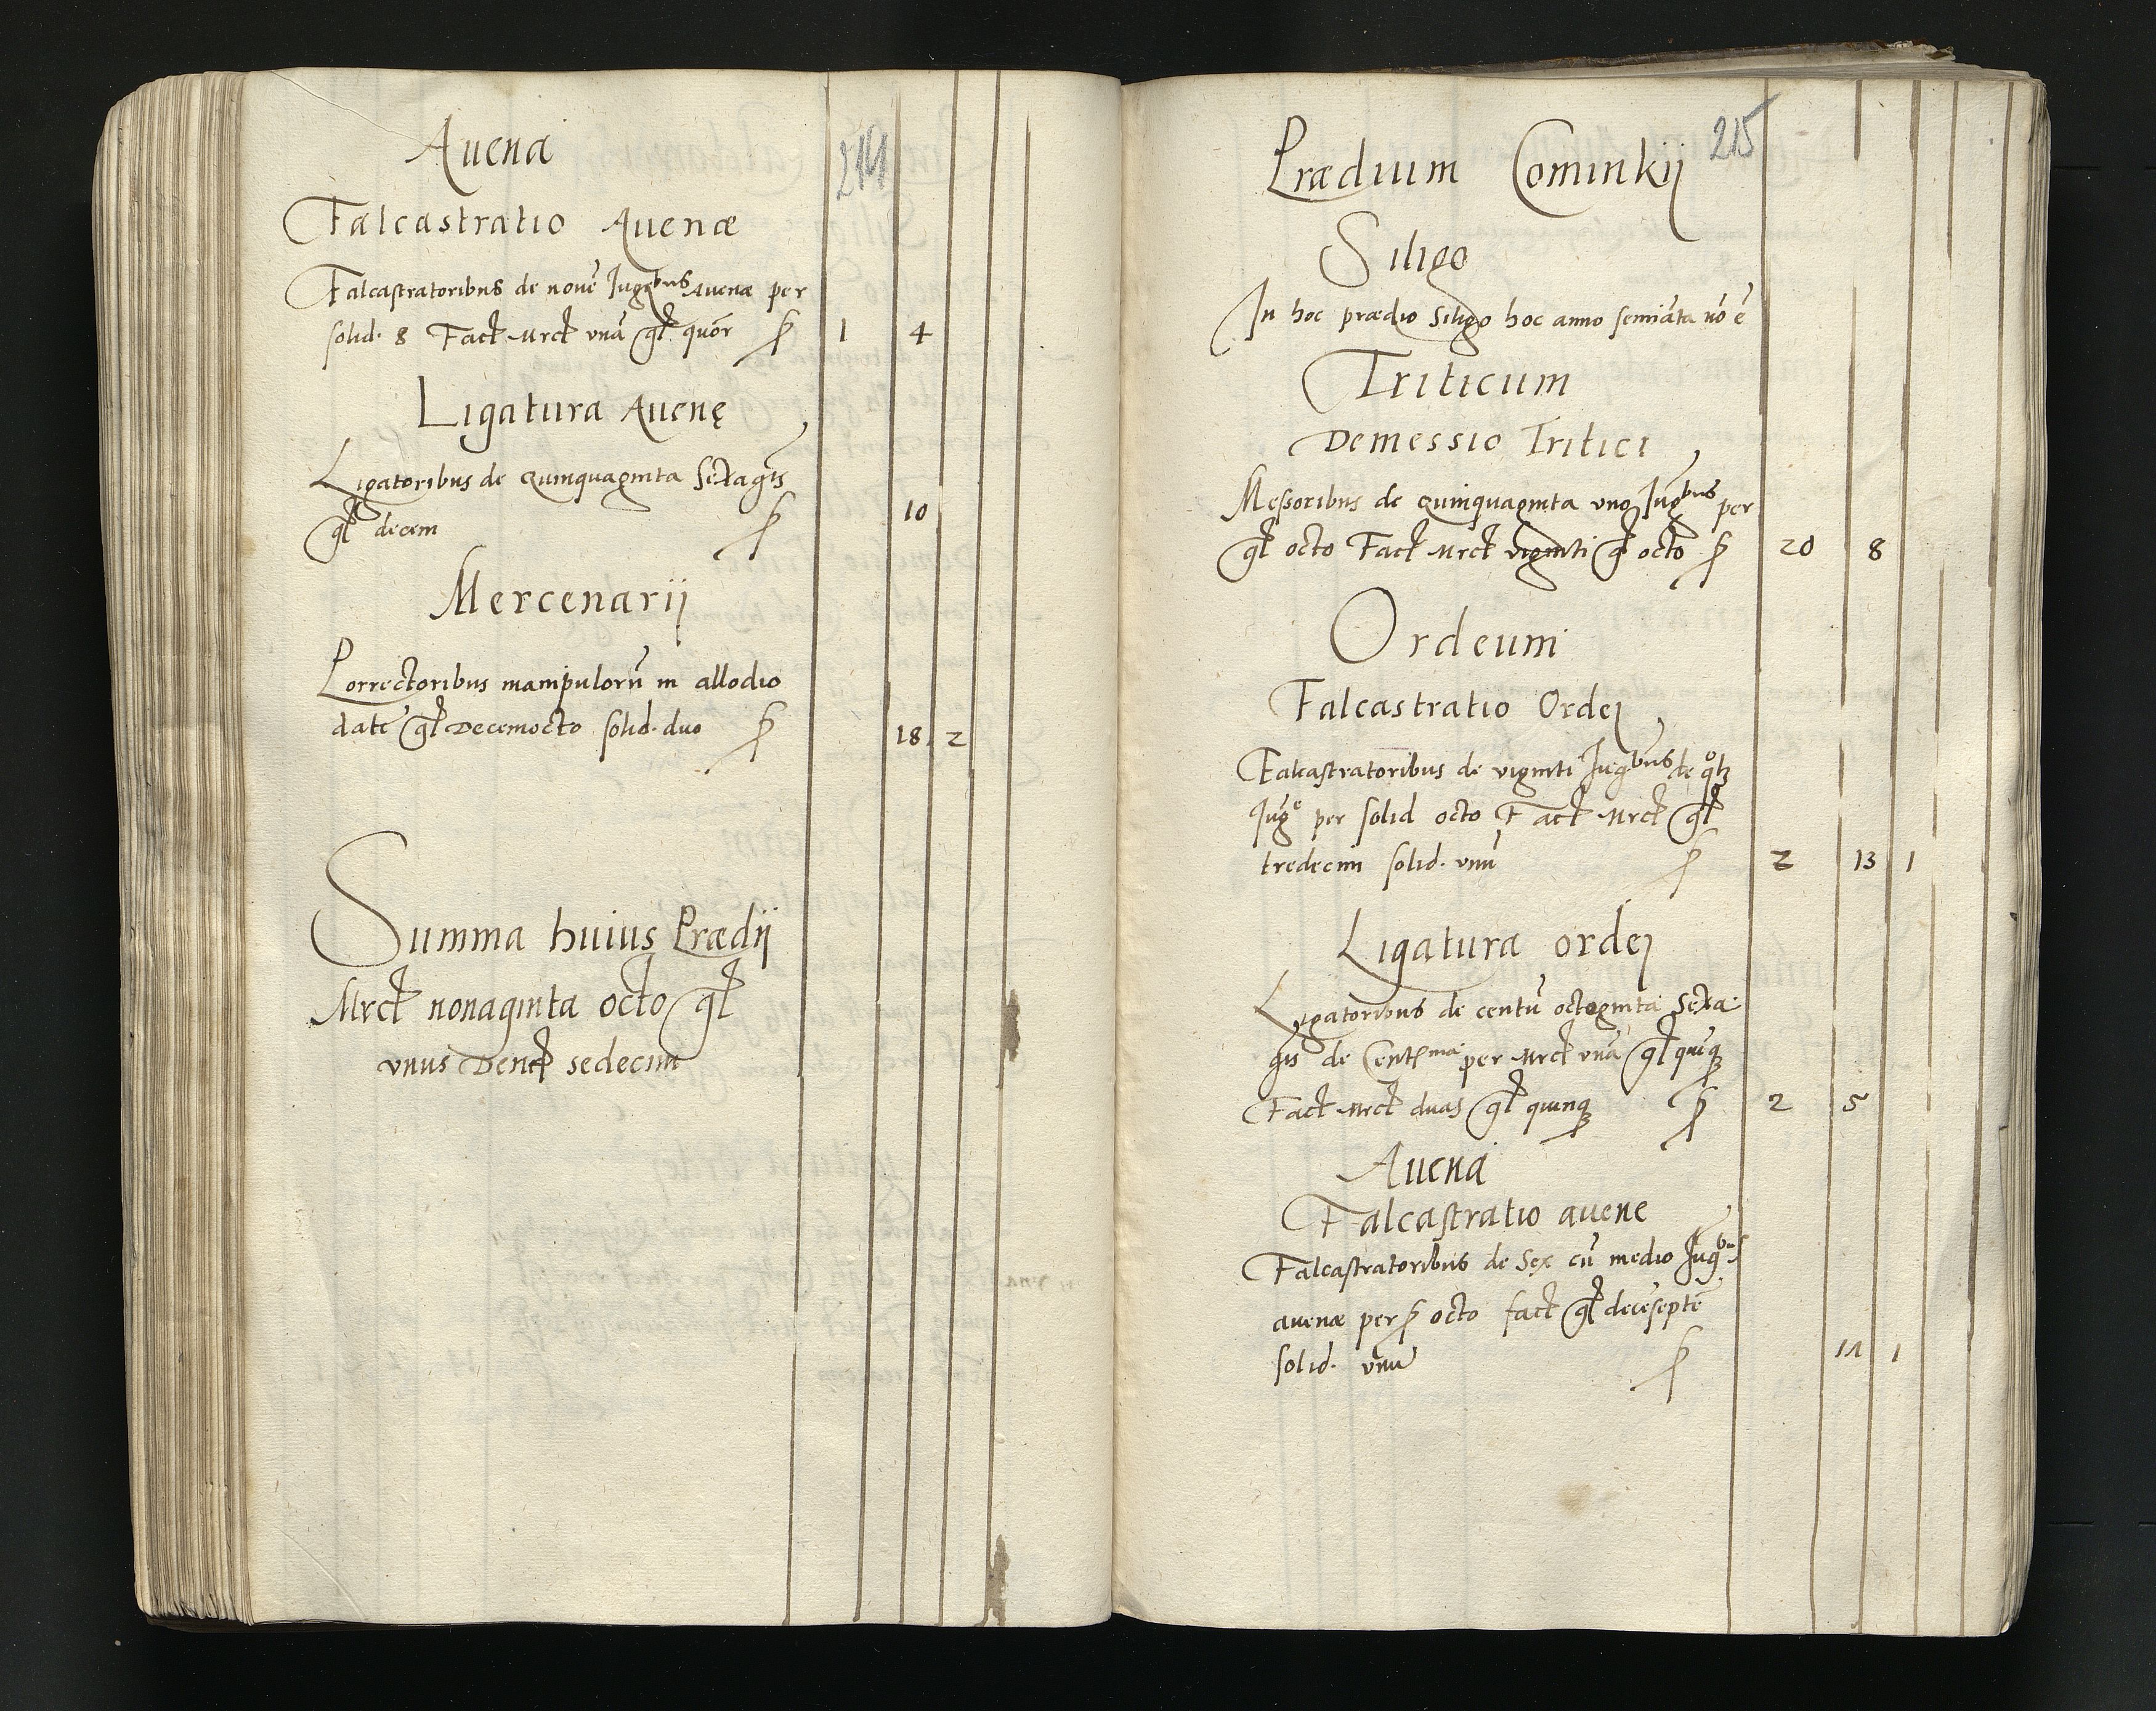 Auena
214
Falcastratio Auenæ
Falcastratoribus de nouē Jugᵇᵘˢ Auenæ per
solid. 8 Fact Mrct vnā gt quōr ꝑ 1 4
Ligatura Auenę
Ligatoribus de Quinquaginta Sexagis
gt decem ꝑ 10
Mercenarij
Porrectoribus manipulorū in allodio
date gt Decemocto solid. duo ꝑ 18 2
Summa huius Prædij
Mrct nonaginta octo gt
vnus Den sedecim
215
Prædium Cominkij
Siligo
In hoc prædio Siligo hoc anno semiāta nō ē
Triticum
Demessio Tritici
Messoribus de Quinquaginta uno Jugᵇᵘˢ per
gt octo Fact Mrct viginti g octo ꝑ 20 8
Ordeum
Falcastratio Ordej
Falcastratoribus de viginti Jugᵇᵘˢ de
Jugº per solid octo Fact Mrct gt
tredecim solid. vnū ꝑ 2 13 1
Ligatura ordej
Ligatoribus de centū octoginta Sexa
gis de Centᵐᵃ per Mrct vnā gt quīqꝫ
Fact Mrct duas gt quinqꝫ ꝑ 2 5
Auena
Falcastratio avene
Falcastratoribus de Sex cū medio Jugᵇᵘˢ
avenæ per ꝑ octo fact gt decēseptē
solid. vnū ꝑ 17 1